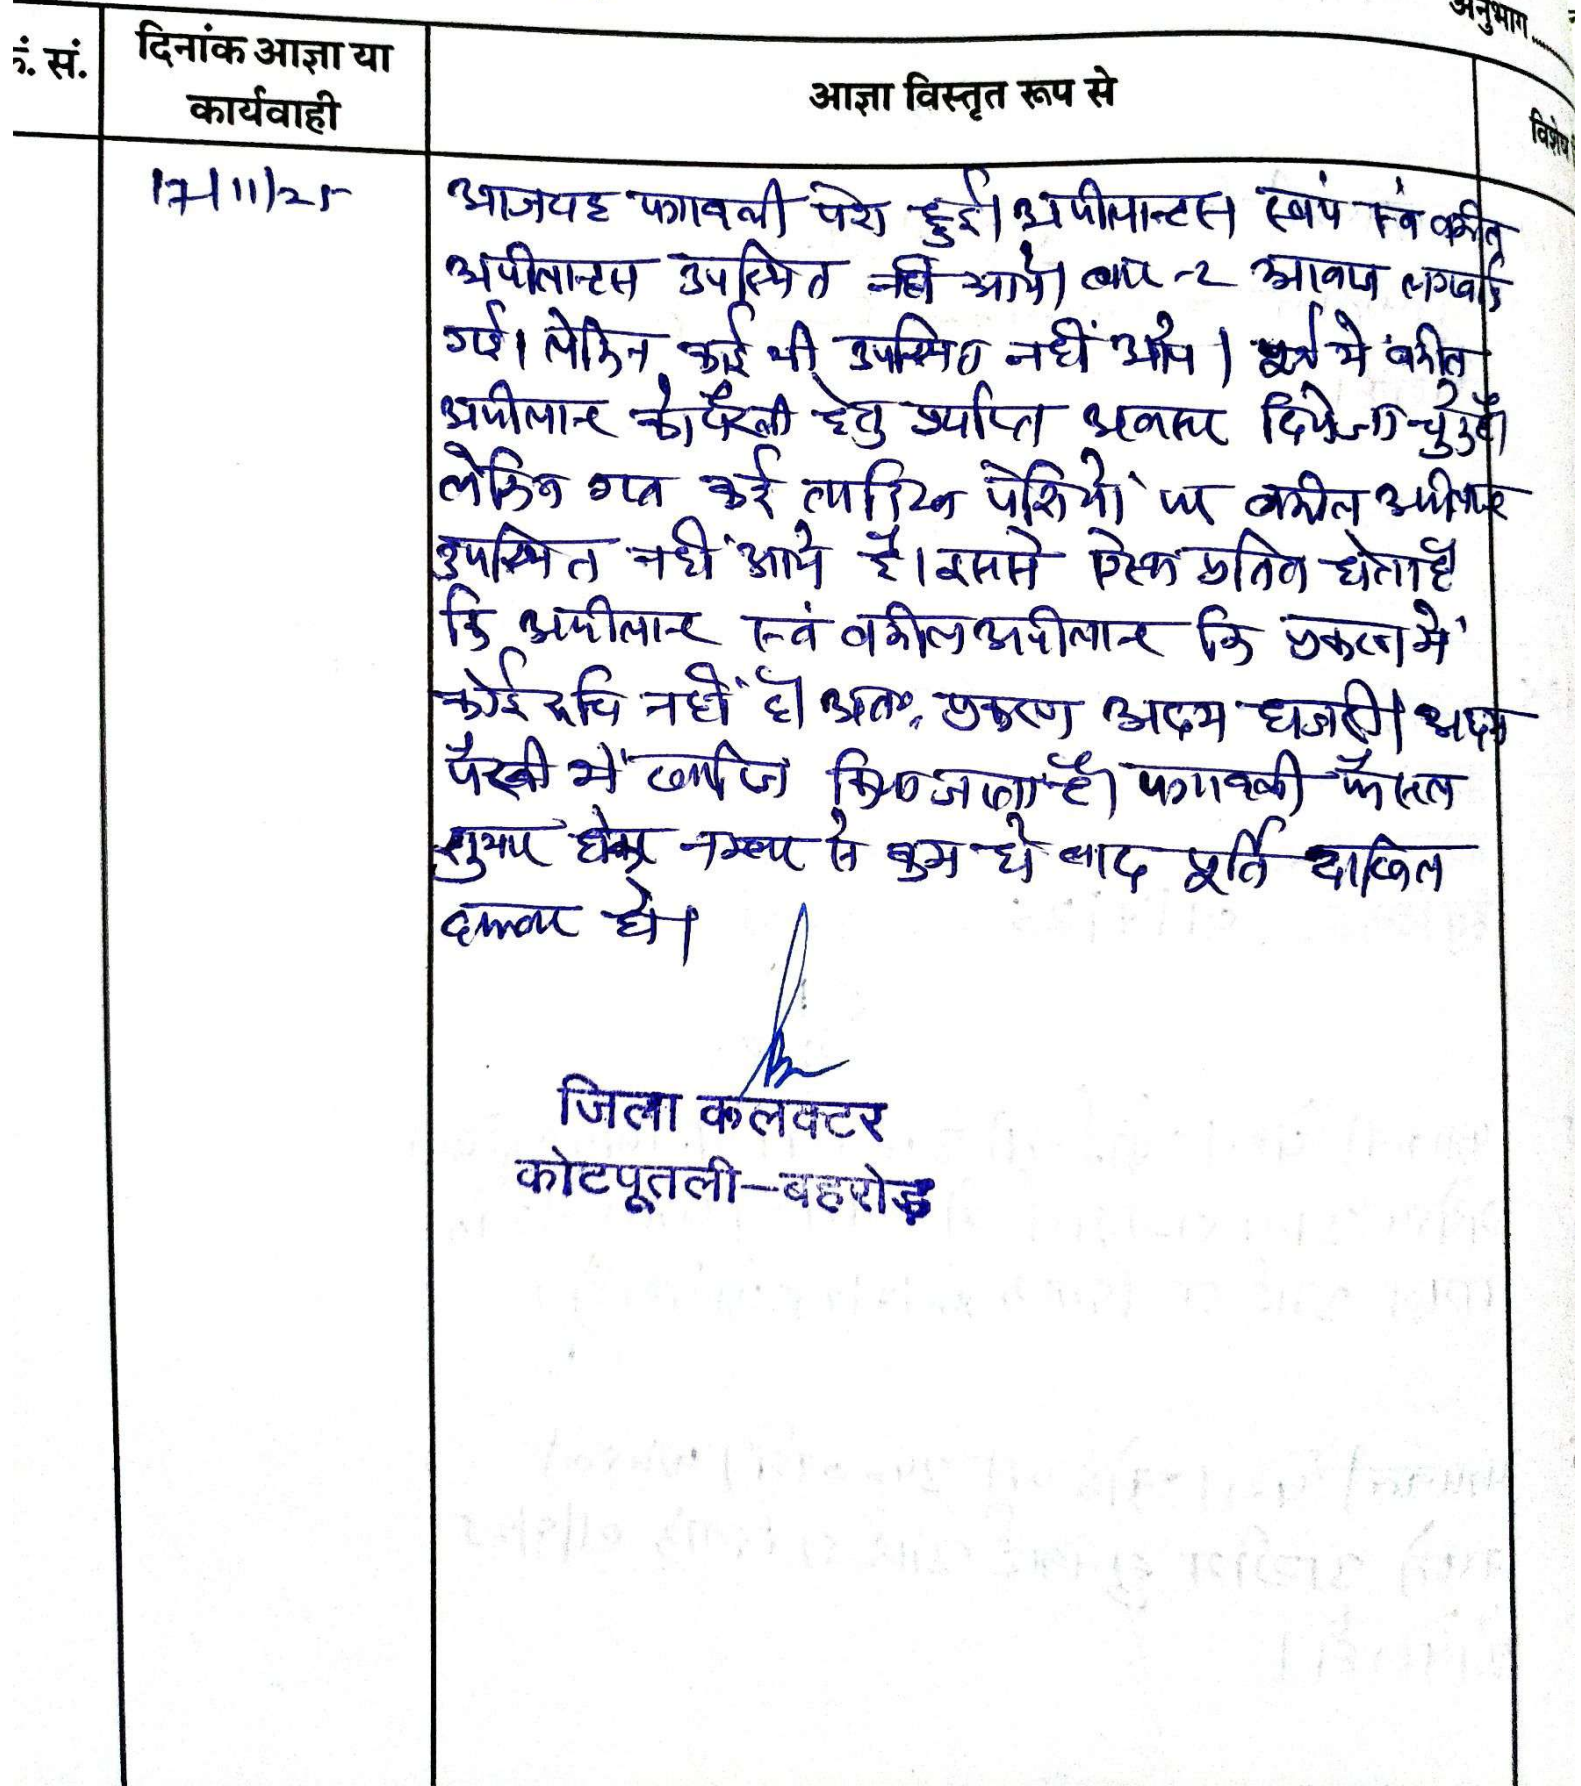 अनुभाग......
क्रं. सं.
दिनांक आज्ञा या
कार्यवाही
आज्ञा विस्तृत रूप से
विशेष
17/11/25
आज यह पत्रावली पेश हुई। अपीलान्टस स्वंय एवं वकील
अपीलान्टस उपस्थित नहीं आये। बार-2 आवाज लगवाई
गई। लेकिन कोई भी उपस्थित नहीं आये। पूर्व मे वकील
अपीलान्ट को पैरवी हेतु पर्याप्त अवसर दिये जा चुके है।
लेकिन गत कई तारिख पेशियों पर वकील अपीलान्ट
उपस्थित नहीं आये है। इससे ऐसा प्रतित होता है
कि अपीलान्ट एवं वकील अपीलान्ट कि प्रकरण में
कोई रूचि नहीं है। अतः प्रकरण अदम हाजरी। अदम
पैरवी में खारिज किया जाता है। पत्रावली फैसल
शुमार होकर नम्बर से कम हो बाद पूर्ति दाखिल
दफ्तर हो।
जिला कलक्टर
कोटपूतली-बहरोड़